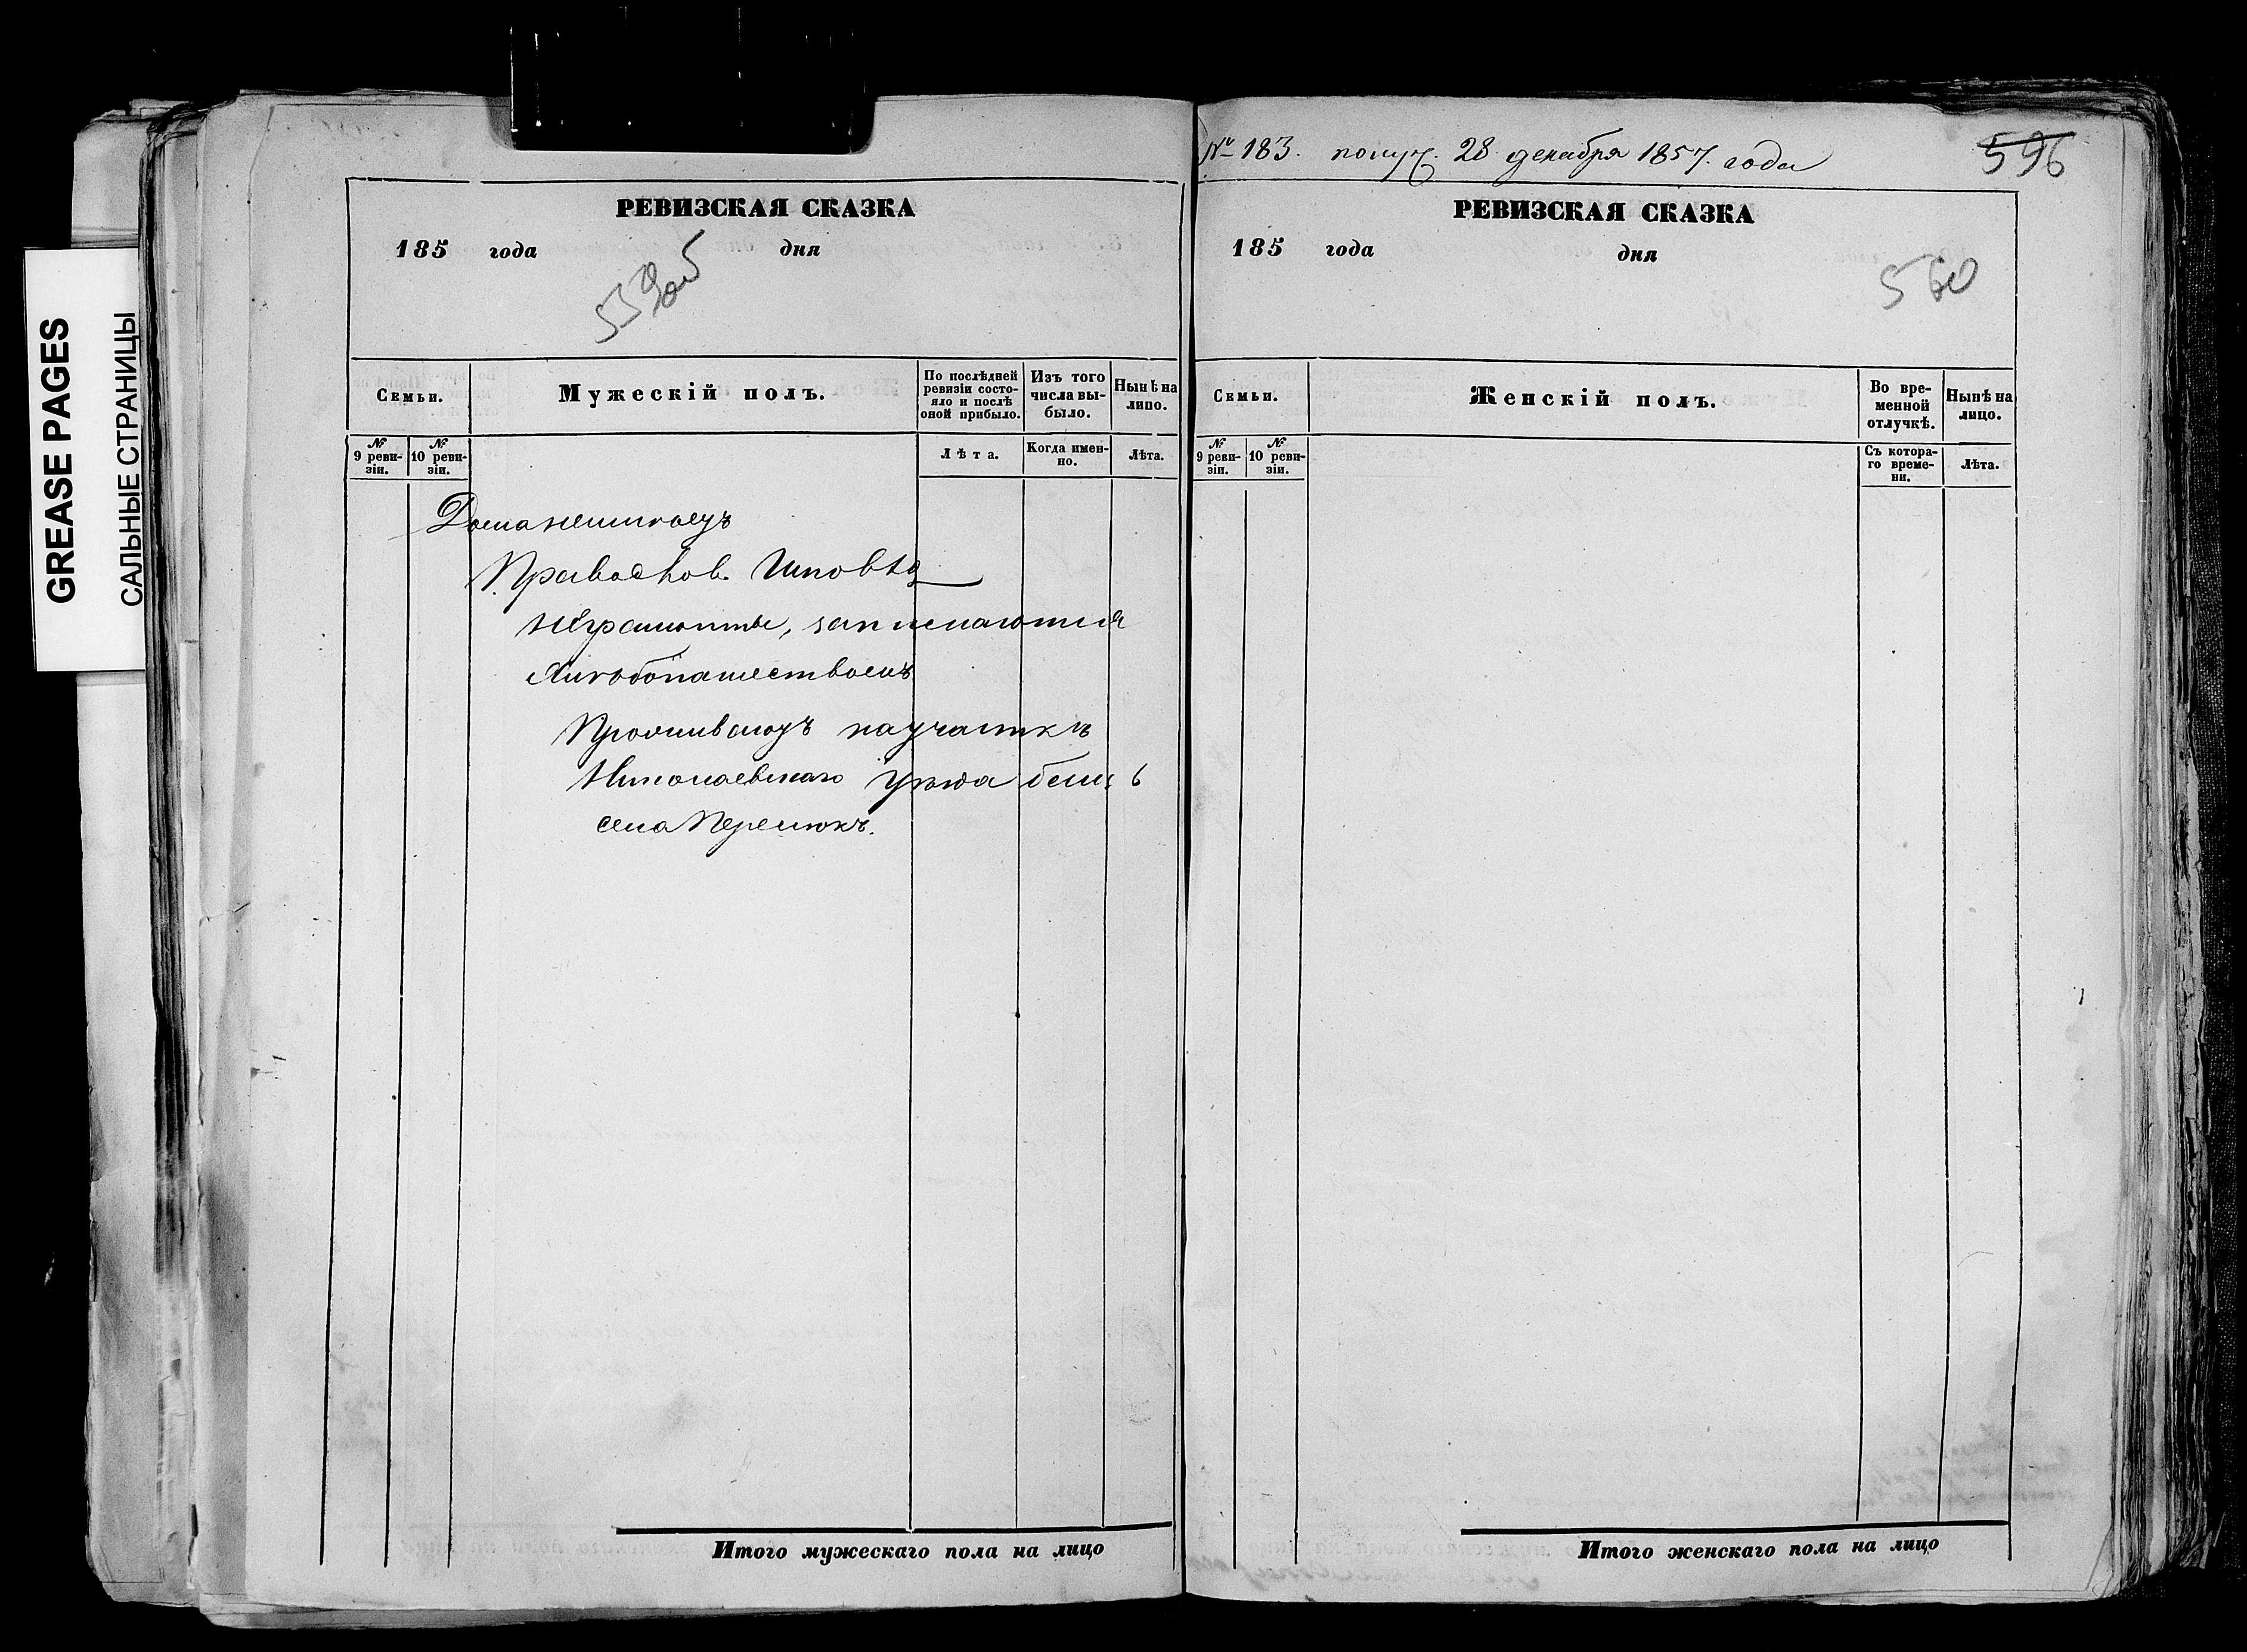 GREASE PAGES
САЛЬНЫЕ СТРАНИЦЫ
РЕВИЗСКАЯ СКАЗКА
185 года дня
559об
Семьи.
Мужескій полъ.
По послѣдней ревизіи состояло и послѣ оной прибыло.
Изъ того числа выбыло.
Нынѣ на лицо.
№ 9 ревизіи.
№ 10 ревизіи.
Лѣта.
Когда именно.
Лѣта.
Дома неимѣютъ
Правосков. Исповѣд
неграмотны, занимаются
хлѣбопашествомъ
Проживаютъ на участкѣ
Николаевскаго уѣзда близь
села Перелюкъ.
Итого мужескаго пола на лицо
№ 183. получ. 28 декабря 1857. года
596
РЕВИЗСКАЯ СКАЗКА
185 года дня
560
Семьи.
Женскій полъ.
Во временной отлучкѣ.
Нынѣ на лицо.
№ 9 ревизіи.
№ 10 ревизіи.
Съ котораго времени.
Лѣта.
Итого женскаго пола на лицо